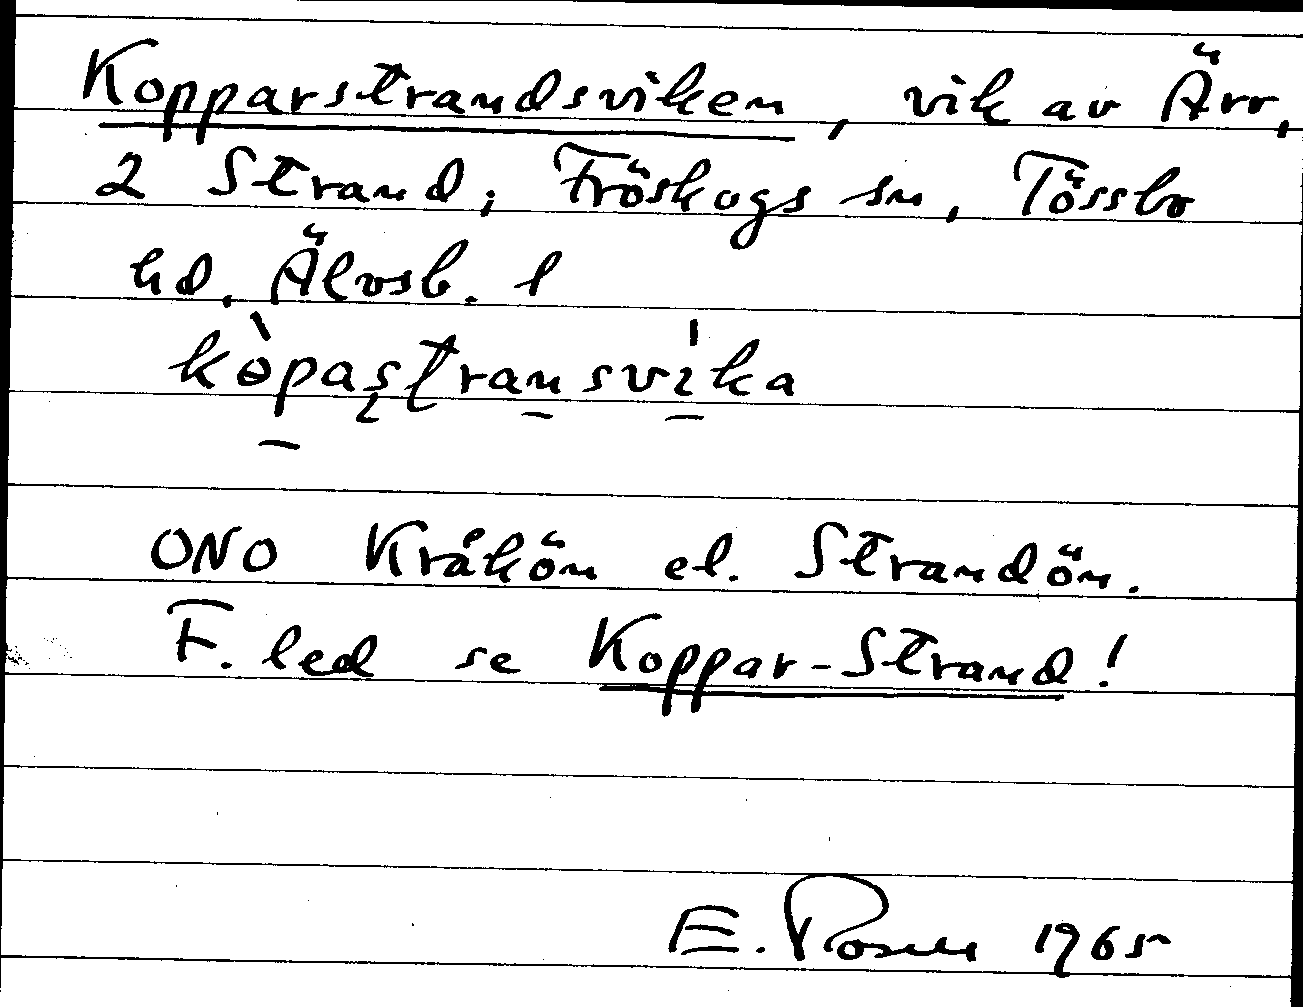 Kopparstrandsviken, vik av Ärr,
2 Strand; Fröskogs sn, Tössbo
hd. Älvsb. l
kòpaştransvika
ONO Kråkön el. Strandön.
F. led se Koppar-Strand!
E. 1965